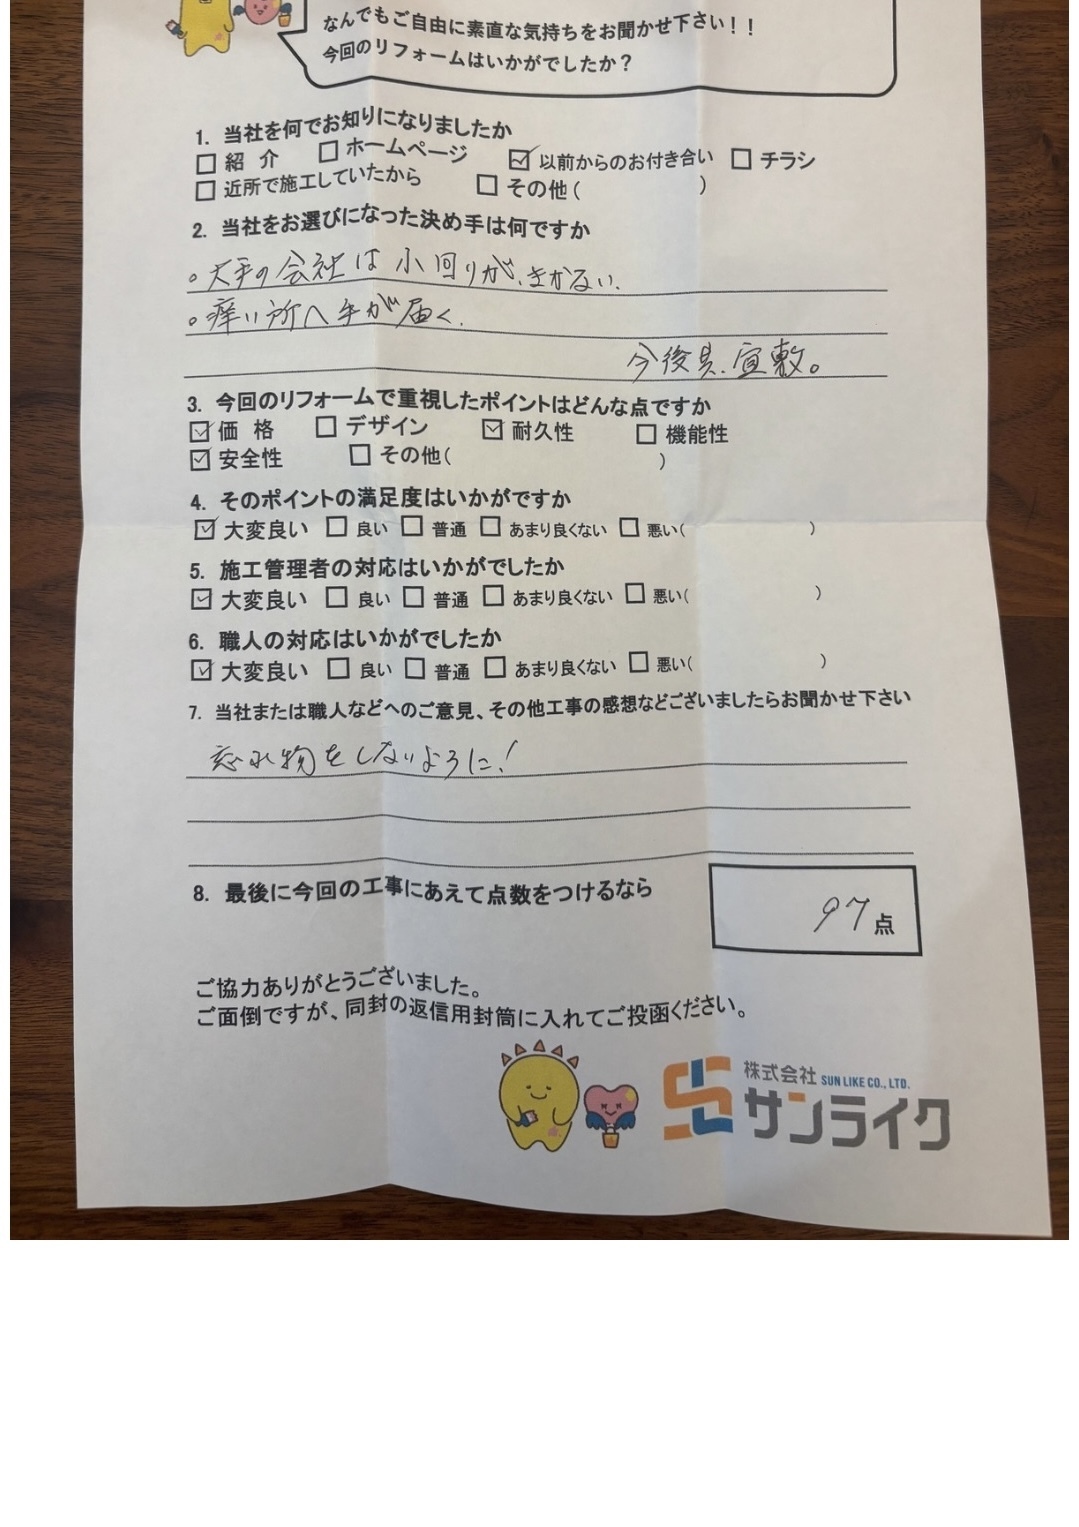 なんでもご自由に素直な気持ちをお聞かせ下さい！！
今回のリフォームはいかがでしたか？
1. 当社を何でお知りになりましたか
□ 紹 介 □ ホームページ ☑ 以前からのお付き合い □ チラシ
□ 近所で施工していたから □ その他( )
2. 当社をお選びになった決め手は何ですか
○大手の会社は小回りが、きかない.
○痒い所へ手が届く.
今後共.宜敷。
3. 今回のリフォームで重視したポイントはどんな点ですか
☑ 価 格 □ デザイン ☑ 耐久性 □ 機能性
☑ 安全性 □ その他( )
4. そのポイントの満足度はいかがですか
☑ 大変良い □ 良い □ 普通 □ あまり良くない □ 悪い( )
5. 施工管理者の対応はいかがでしたか
☑ 大変良い □ 良い □ 普通 □ あまり良くない □ 悪い( )
6. 職人の対応はいかがでしたか
☑ 大変良い □ 良い □ 普通 □ あまり良くない □ 悪い( )
7. 当社または職人などへのご意見、その他工事の感想などございましたらお聞かせ下さい
忘れ物をしないように!
8. 最後に今回の工事にあえて点数をつけるなら
97点
ご協力ありがとうございました。
ご面倒ですが、同封の返信用封筒に入れてご投函ください。
株式会社 SUN LIKE CO., LTD.
サンライク